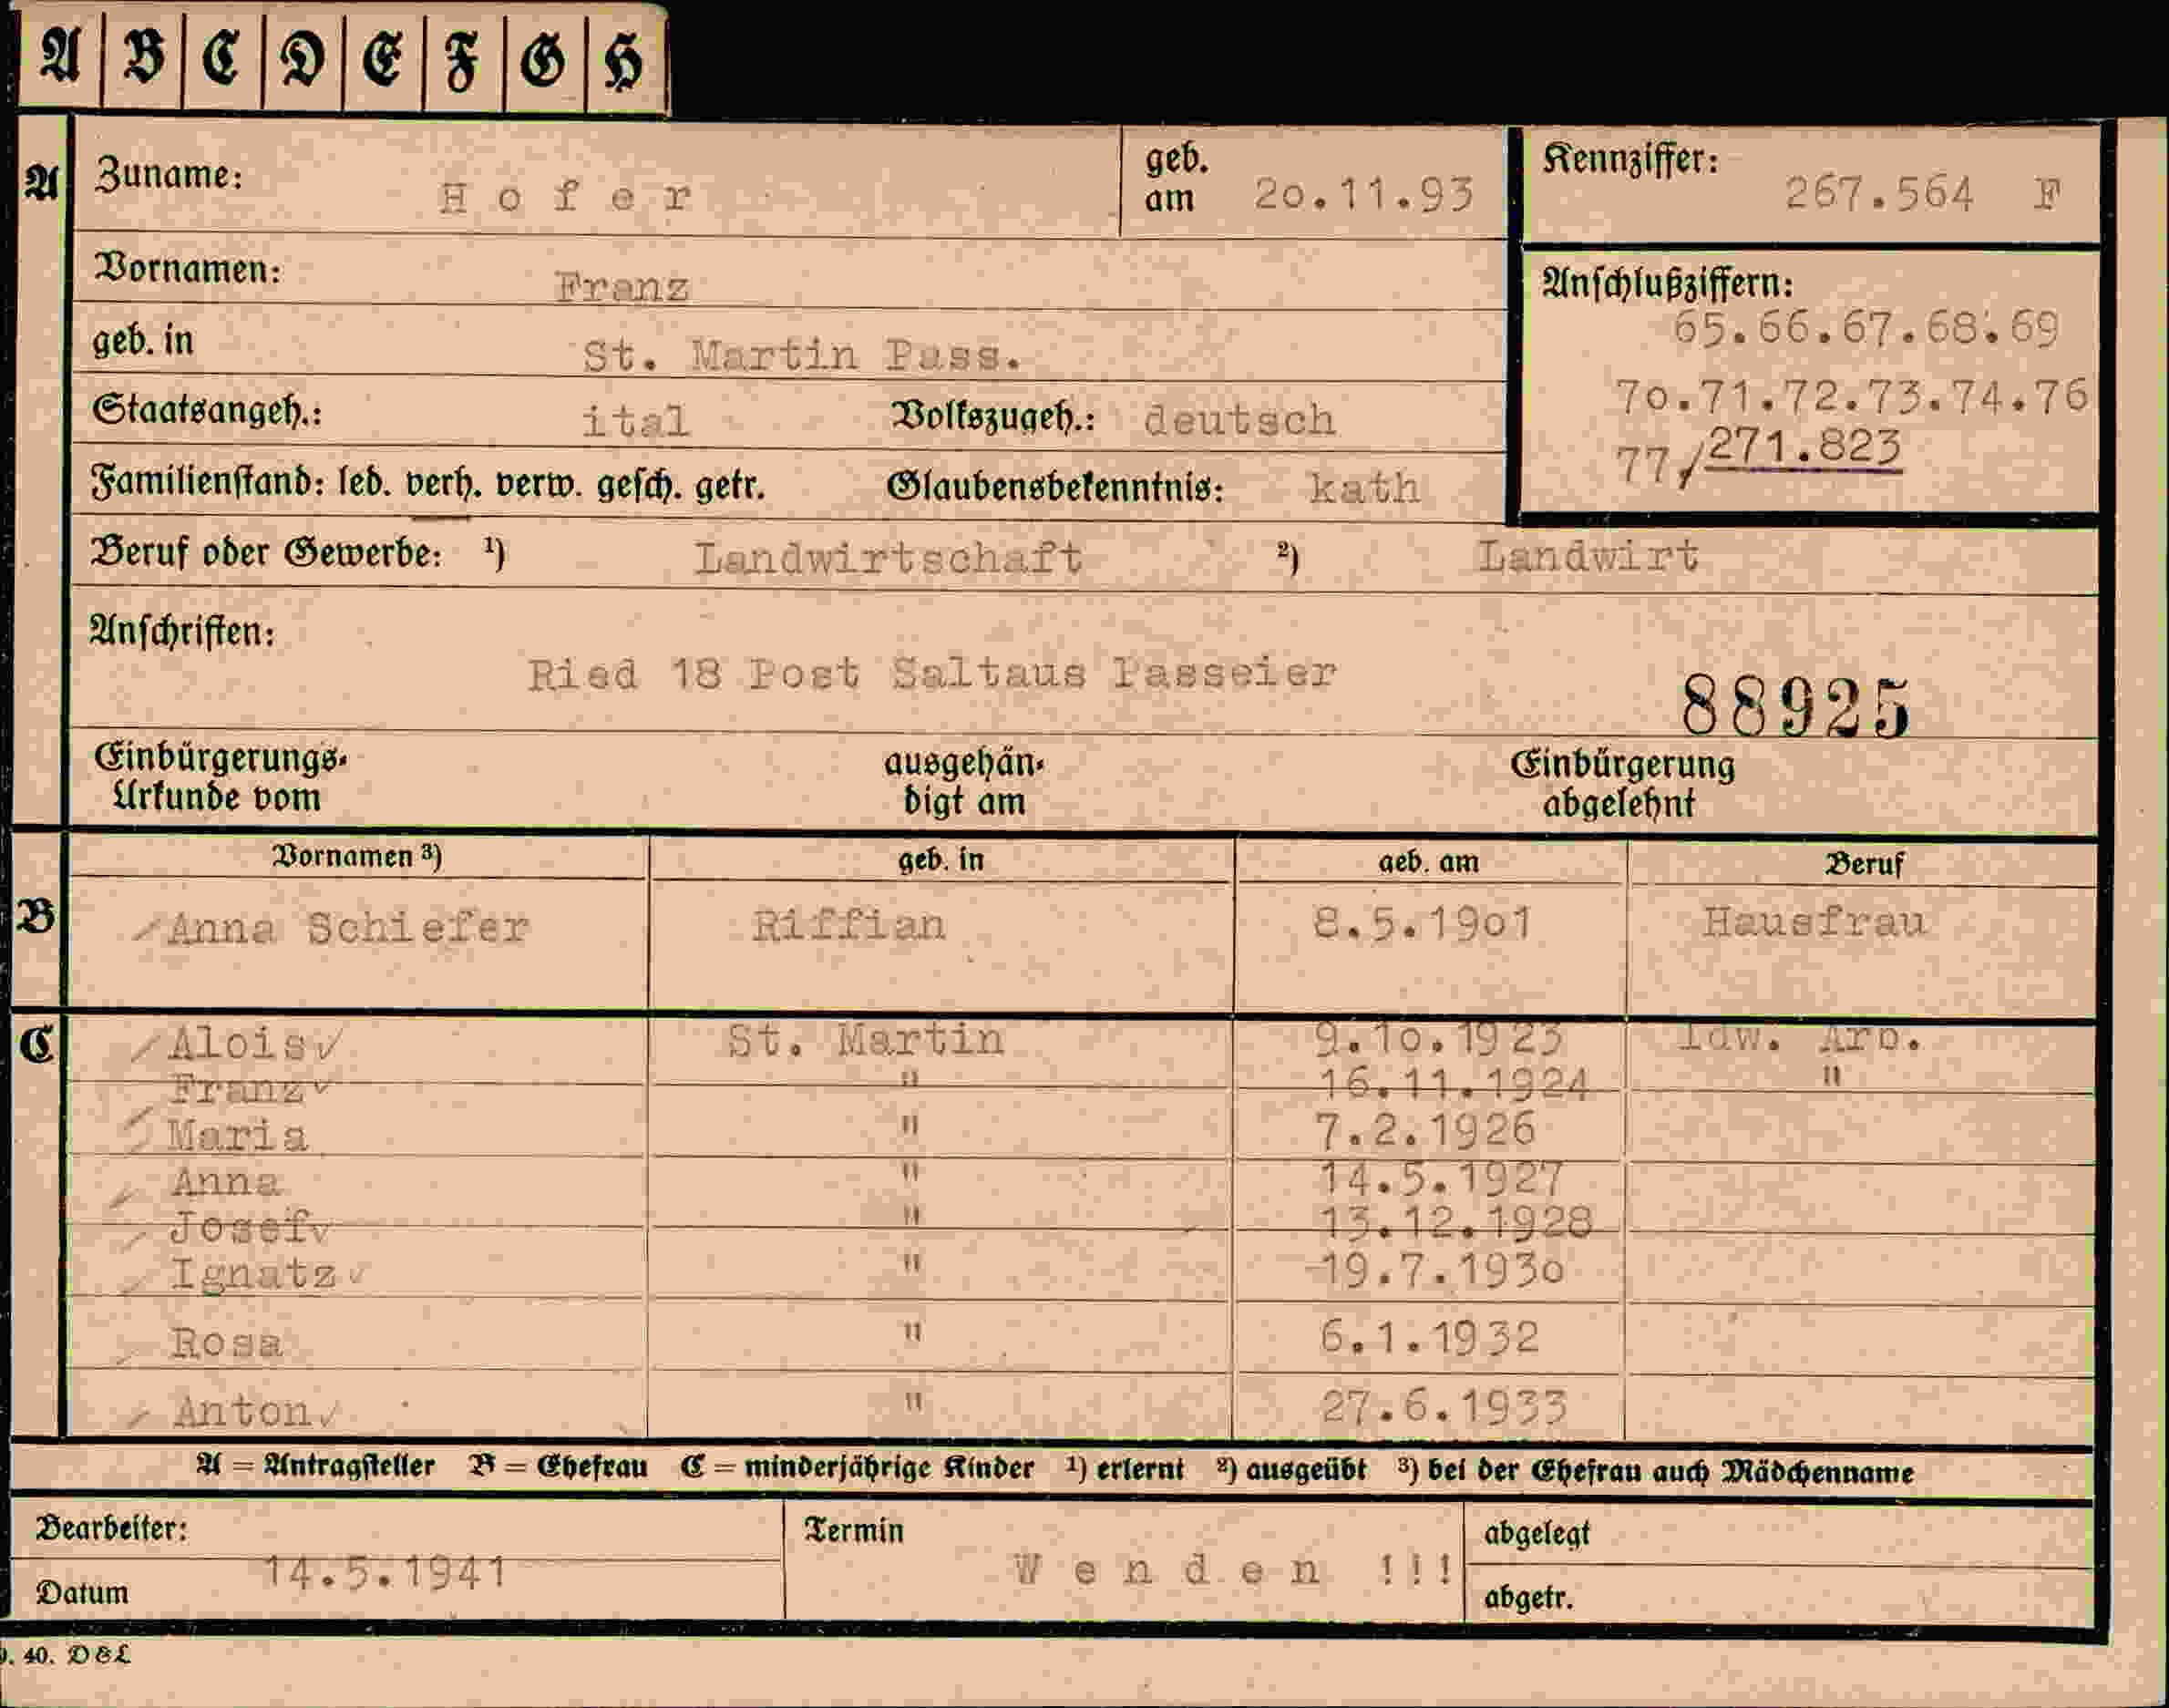 A B C D E F G H
A Zuname: Hofer geb. am 20.11.93 Kennziffer: 267.564 F
Vornamen: Franz
Anschlußziffern:
geb. in St. Martin Pass. 65.66.67.68.69
Staatsangeh.: ital Volkszugeh.: deutsch 70.71.72.73.74.76
Familienstand: led. verh. verw. gesch. getr. Glaubensbekenntnis: kath 77/271.823
Beruf oder Gewerbe: ¹) Landwirtschaft ²) Landwirt
Anschriften:
Ried 18 Post Saltaus Passeier 88925
Einbürgerungs-Urkunde vom ausgehändigt am Einbürgerung abgelehnt
Vornamen ³) geb. in geb. am Beruf
B Anna Schiefer Riffian 8.5.1901 Hausfrau
C Alois St. Martin 9.10.1923 ldw. Arb.
Franz " 16.11.1924 "
Maria " 7.2.1926
Anna " 14.5.1927
Josef " 13.12.1928
Ignatz " 19.7.1930
Rosa " 6.1.1932
Anton " 27.6.1933
A = Antragsteller B = Ehefrau C = minderjährige Kinder ¹) erlernt ²) ausgeübt ³) bei der Ehefrau auch Mädchenname
Bearbeiter: Termin abgelegt
14.5.1941 Wenden !!!
Datum abgetr.
. 40. D&L